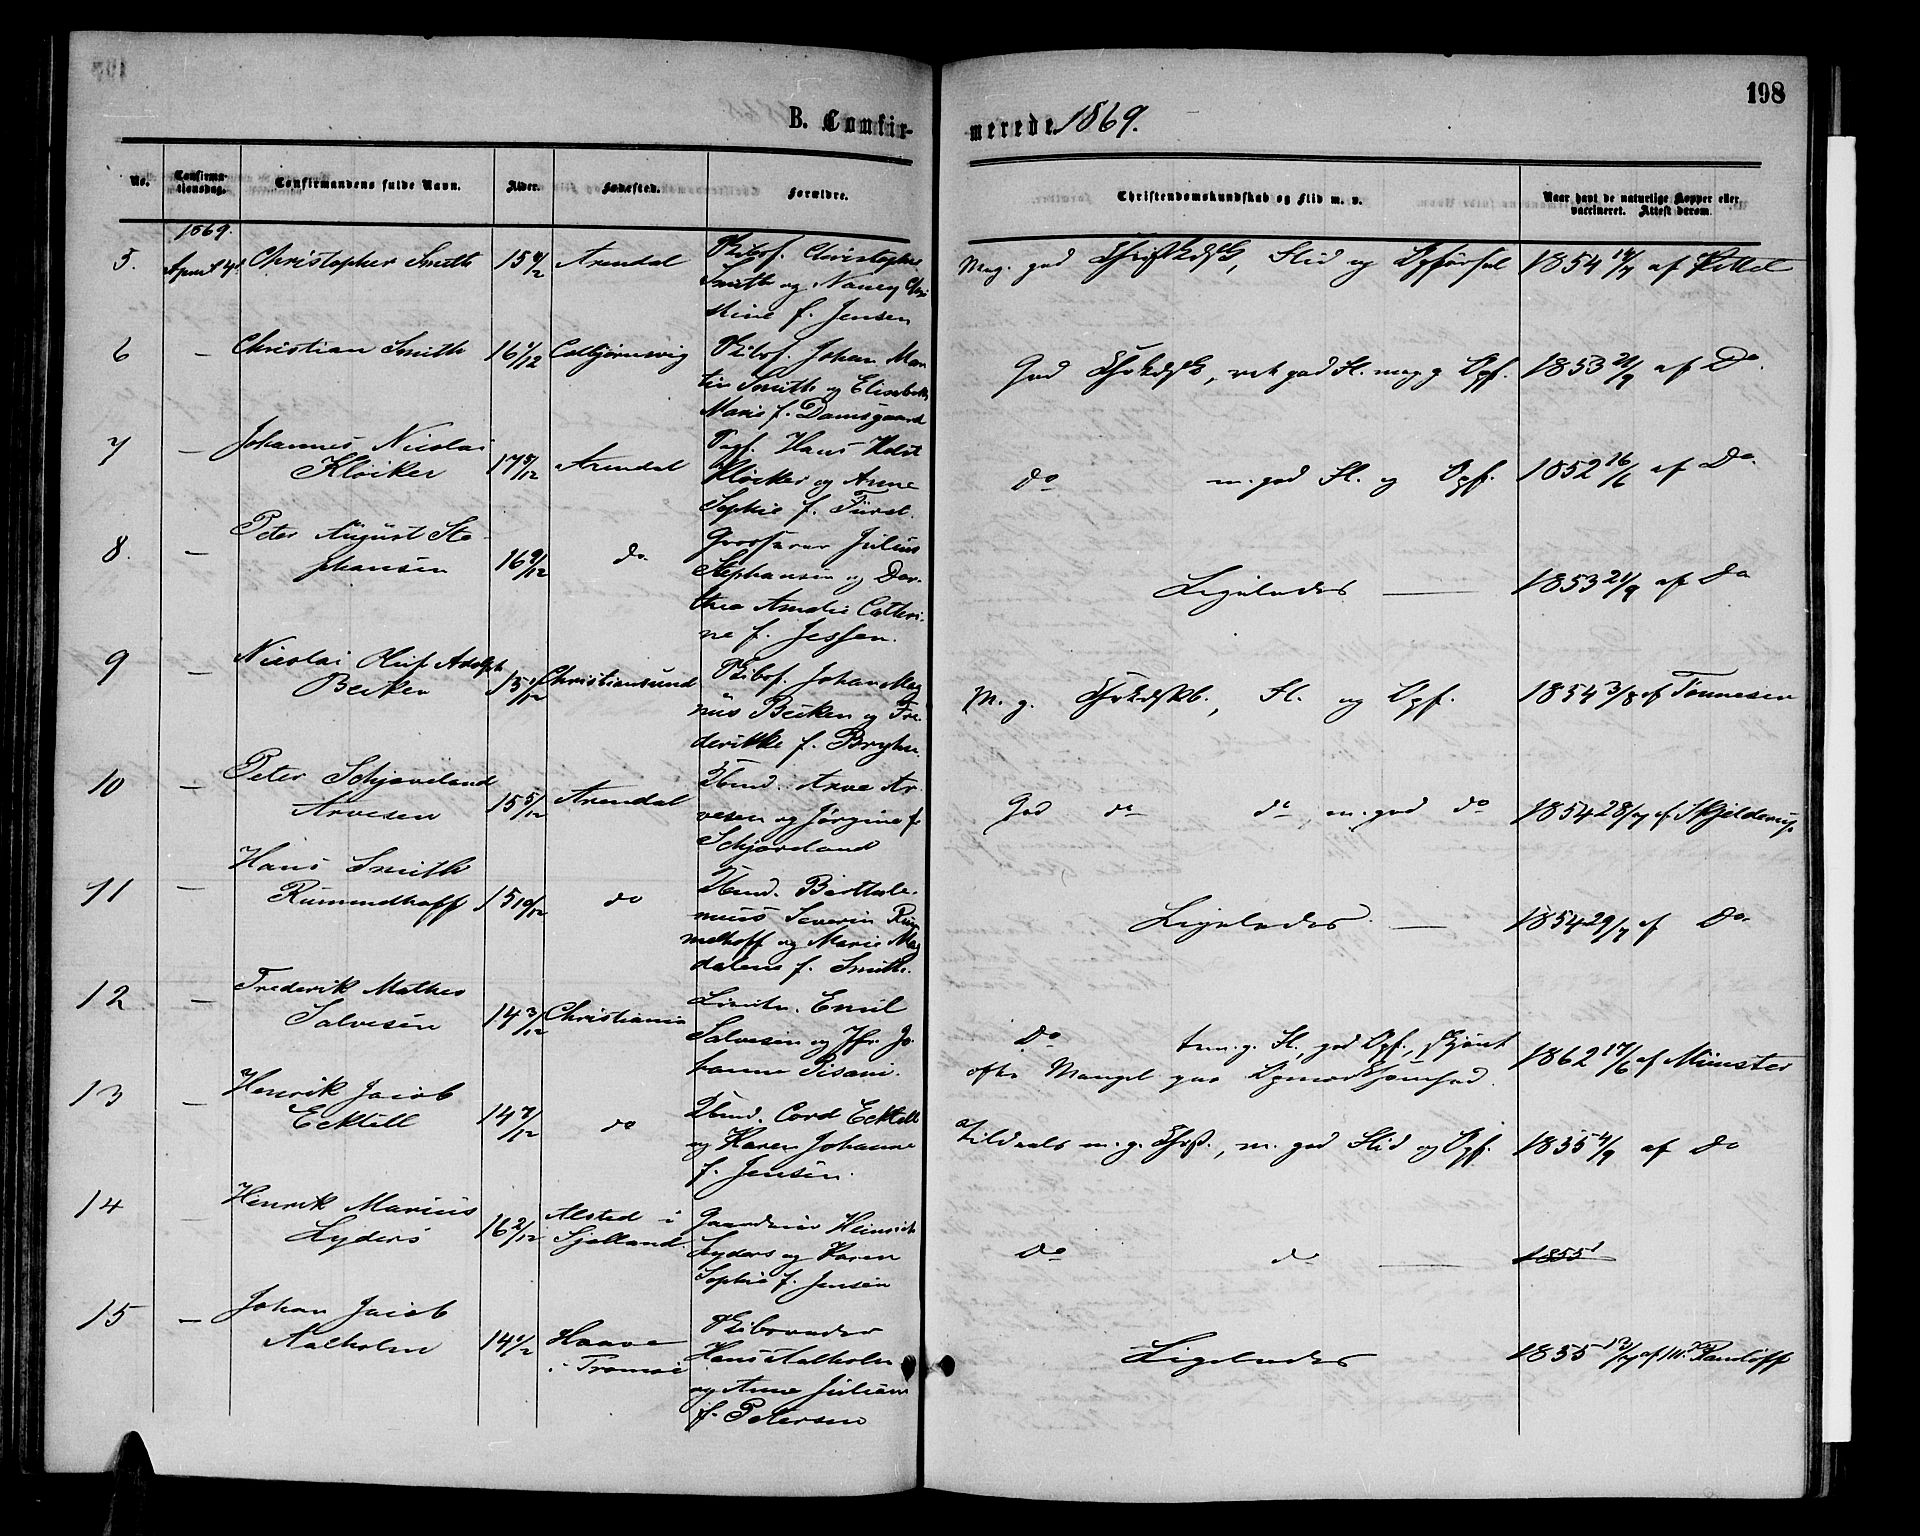 198
B. Confir-
merede 1869.
No.
Confirma-
tionsdag.
Confirmandens fulde Navn.
Alder.
Fødested.
Forældre.
Christendomskundskab og Flid m. v.
Naar havt de naturlige Kopper eller
vaccineret. Attest derom.
1869.
5. April 4. Christopher Smith 15 1/2 Arendal Skibsf. Christopher
Smith og Nancy Chri
stine f. Jensen
Meg. god Christkdsk, Flid og Opførsel 1854 af Kittel
6 — Christian Smith 16 Colbjørnsvig Skibsf. Johan Mar
tin Smith og Elisabeth
Marie f. Damsgaard
God Chrkdsk, ret god Fl. meg g Opf. 1853 21/9 af Do
7 — Johannes Nicolai
Kløcker 17 5/12 Arendal Hans Holst
Kløcker og Anne
Sophie f. Fürst.
do m. god Fl. og Opf. 1852 16/6 af Do
8. — Peter August Ste
phansen 16 9/12 do Grosserer Julius
Stephansen og Dor-
thea Amalie Cathri-
ne f. Jessen.
Ligeledes — 1853 21/9 af Do
9 — Nicolai Oluf Adolph
Becken 15 Christiansund Skibsf. Johan Mag
nus Becken og Fre
derikke f. Bryhn.
M. g. Chrkdskb., Fl. og Opf. 1854 3/8 af Tønnesen
10 — Peter Schjøveland
Arvesen 15 5/12 Arendal Tbmd. Arve Ar
vesen og Jørgine f.
Schjøveland
God do do, m. god do 1854 28/7 af Skjelderup
11 — Hans Smith
Rummelhoff 15 10/12 do Tbmd. Bartholo-
mæus Severin Rum
melhoff og Marie Mag
dalene f. Smith.
Ligeledes — 1854 29/7 af Do
12 — Frederik Mathes
Salvesen 14 3/12 Christiania Emil
Salvesen og Jfr. Jo
hanne Pisani.
Do tem. g. Fl., god Opf., skjønt
ofte Mangel paa Opmærksomhed. 1862 17/6 af Münster
13 — Henrik Jacob
Ecktell 14 7/12 do Tbmd. Cord Ecktell
og Karen Johanne
f. Jensen.
Tildeels m. g. Chrst., m. god Flid og Opf. 1855 4/9 af Do
14 — Henrik Marius
Lyders 16 2/12 Alsted i
Sjælland. Gaardeier Heinrich
Lyders og Karen
Sophie f. Jensen
Do do — 1855
15 — Johan Jacob
Aalholm 14 1/2 Haave
i Tromøi Skibsreder
Hans Aalholm
og Anne Juliane
f. Petersen
Ligeledes 1855 13/7 af M. Randløff